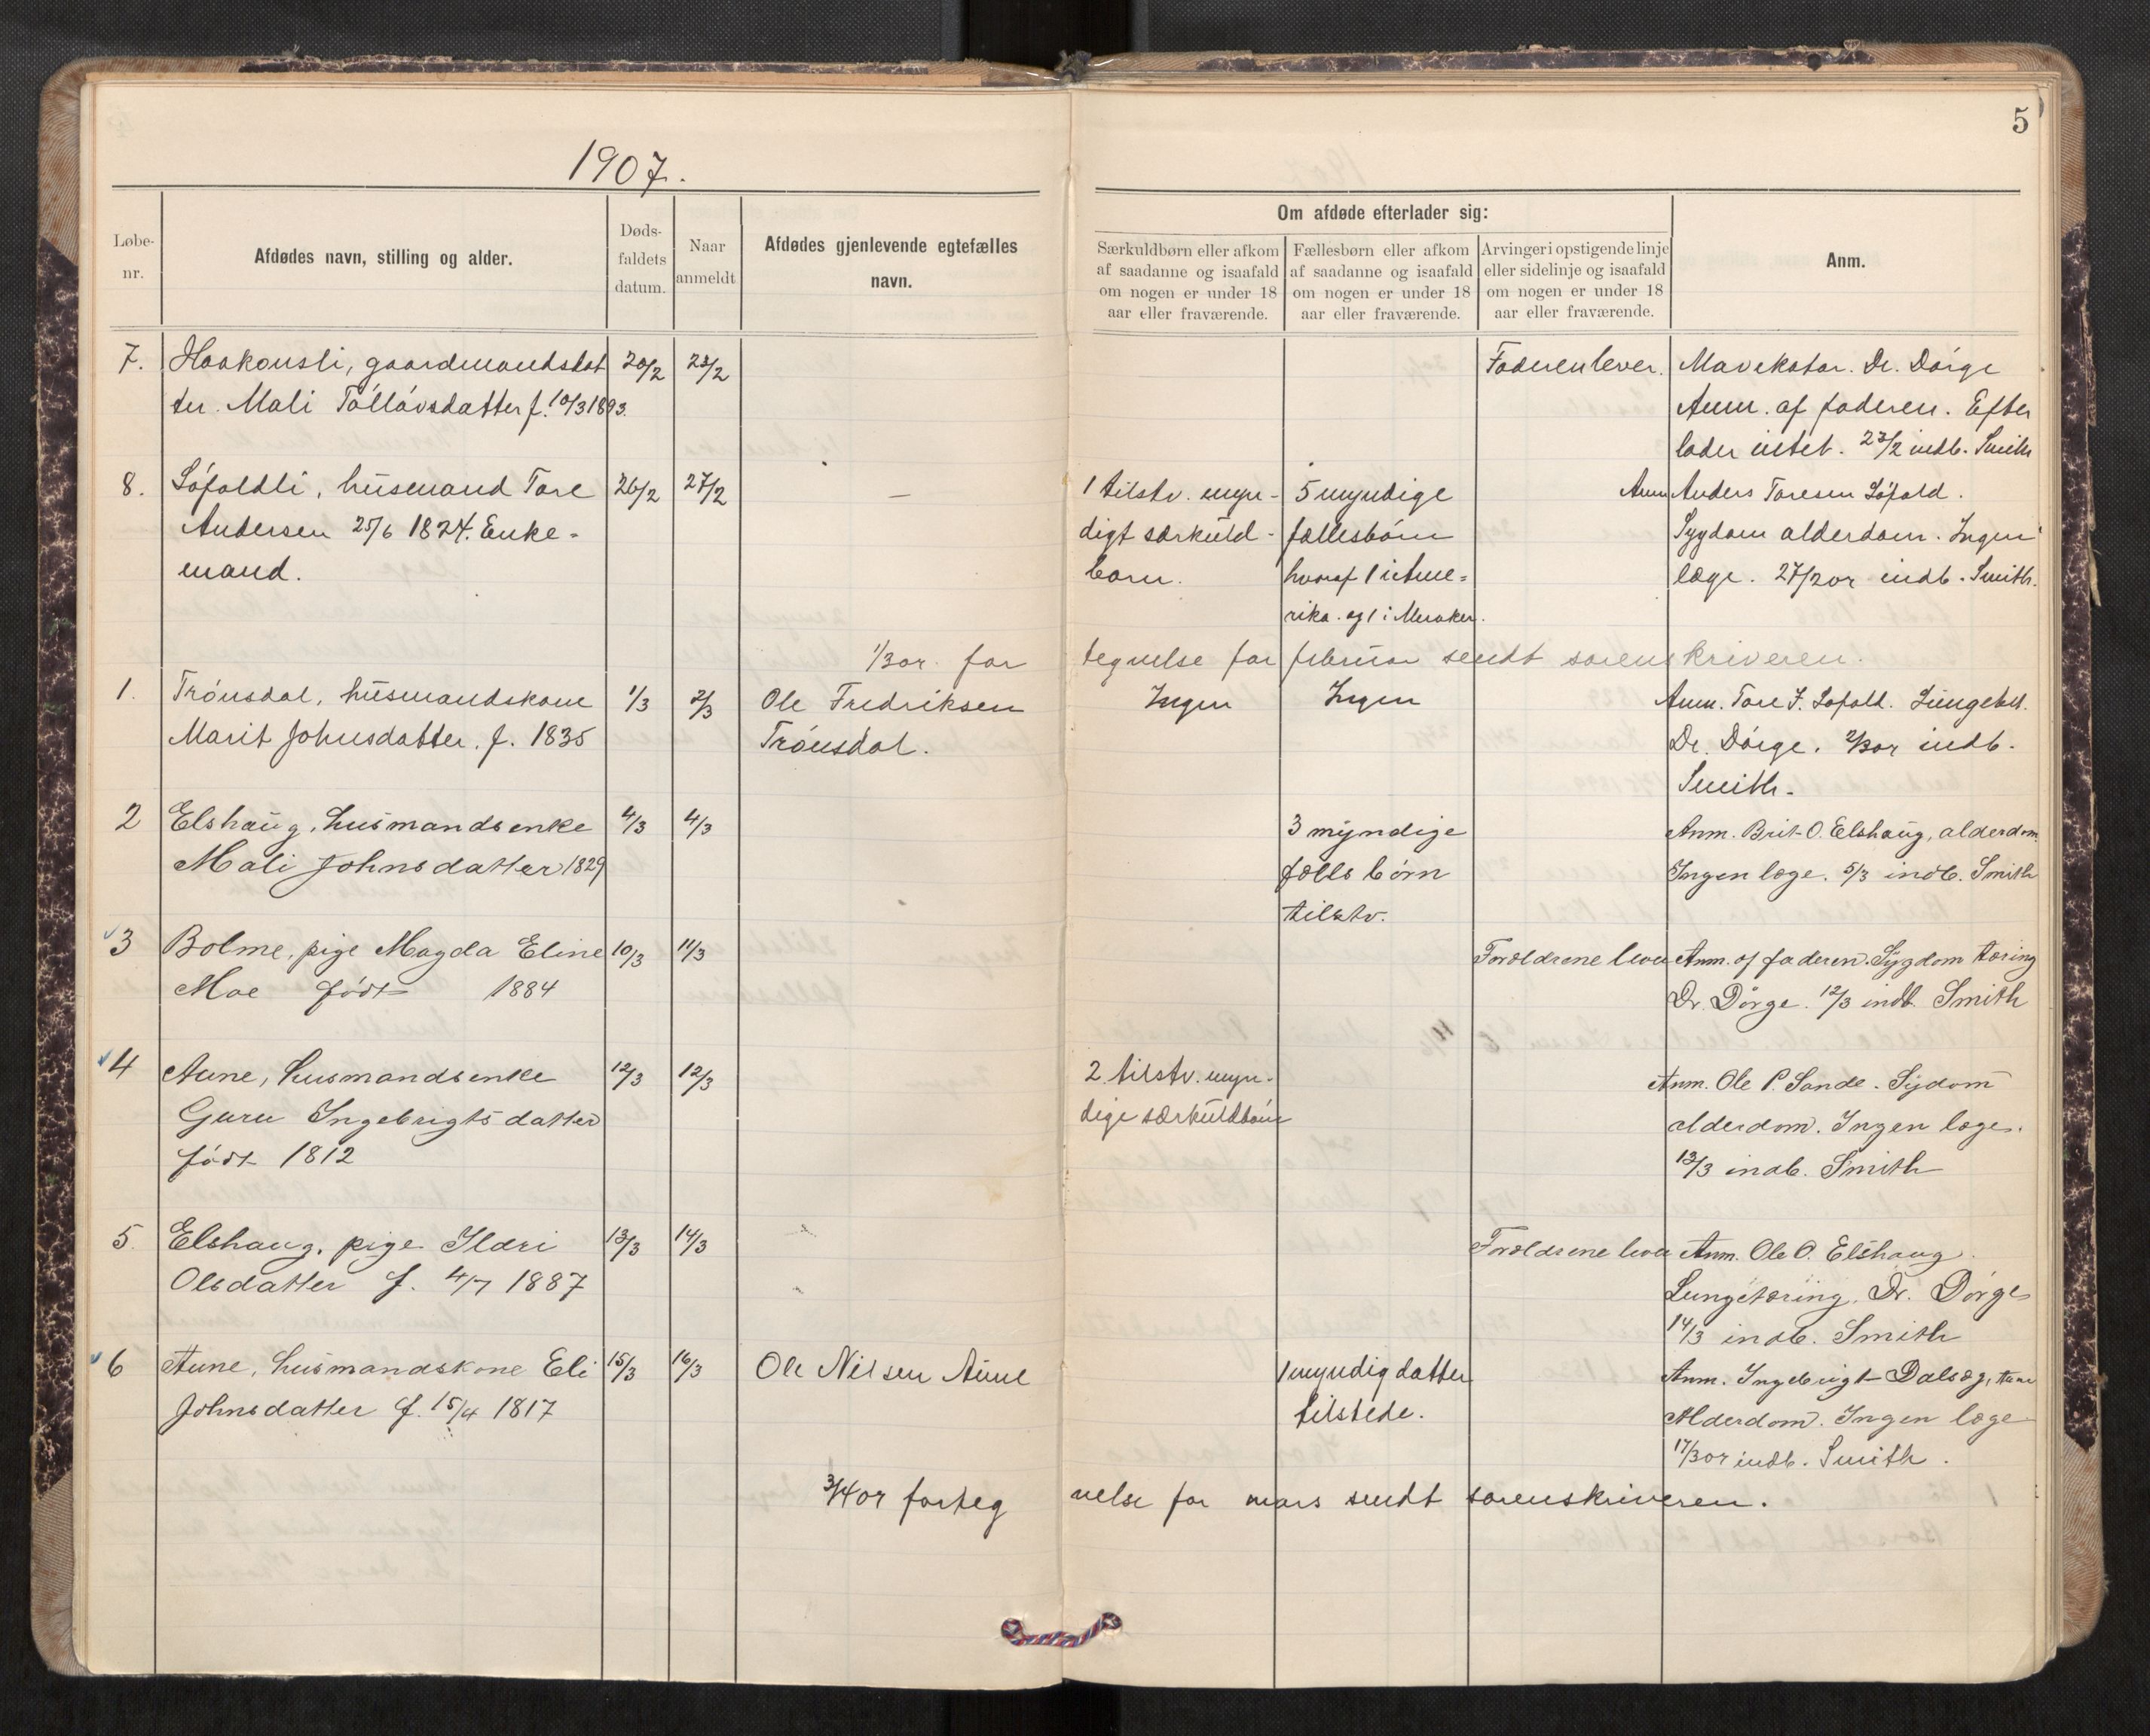 5
1907.
Løbe-
nr.
Afdødes navn, stilling og alder.
Døds-
faldets
datum.
Naar
anmeldt
Afdødes gjenlevende egtefælles
navn.
Om afdøde efterlader sig:
Særkuldbørn eller afkom
af saadanne og isaafald
om nogen er under 18
aar eller fraværende.
Fællesbørn eller afkom
af saadanne og isaafald
om nogen er under 18
aar eller fraværende.
Arvinger i opstigende linje
eller sidelinje og isaafald
om nogen er under 18
aar eller fraværende.
Anm.
7. Haakonsli, gaardmandsdat 20/2 23/2 Faderen lever. Mavekatar. Dr. Dórge
ter. Mali Tóllávsdatter f. 10/3 1893. Anm. af faderen. Efter
lader intet. 23/2 indb. Smith
8. Lófaldli, húsmand Tore 26/2 27/2 — 1 tilstv. myn- 5 myndige Anm Anders Toresen Lófald.
Andersen 25/6 1824. Enke- digt særkúld- fællesbórn Sygdom alderdom. Ingen
mand. barn. hvoraf 1 i Ame= læge. 27/2 07 indb. Smith.
rika. og 1 i Meraker.
1/3 07. for tegnelse for februar sendt sorenskriveren.
1. Trónsdal, húsmandskone 1/3 2/3 Ole Fredriksen Ingen Ingen Anm. Tore F. Lofald. Lúngebet.
Marit Johnsdatter. f. 1835 Trónsdal. Dr. Dórge. 2/3 07 indb.
Smith.
2 Elshaŭg, husmandsenke 4/3 4/3 3 myndige Anm. Brit O. Elshaŭg, alderdom.
Mali Johnsdatter 1829 fælls børn Ingen læge. 5/3 indb. Smith
tilstv.
3 Bolme, pige Magda Eline 10/3 11/3 Forældrene lever Anm. af faderen. Sygdom tæring
Moe født 1884 Dr. Dørge. 12/3 indb. Smith
4 Aune, husmandsenke 12/3 12/3 2 tilstv. myn- Anm. Ole P. Sande. Sydom
Guru Ingebrigtsdatter dige særkúldbórn alderdom. Ingen læge.
født 1812 13/3 indb. Smith
5. Elshaug, pige Ildri 13/3 14/3 Forældrene lever Anm. Ole O. Elshaug.
Olsdatter f. 4/7 1887 Lungetæring. Dr. Dørge
14/3 indb. Smith
6 Aune, husmandskone Eli 15/3 16/3 Ole Nilsen Aune 1 myndig datter Anm. Ingebrigt Dalsæg,
Johnsdatter f. 15/4 1817 tilstede. Alderdom. Ingen læge
17/3 07 indb. Smith.
3/4 07 forteg nelse for mars sendt sorenskriveren.